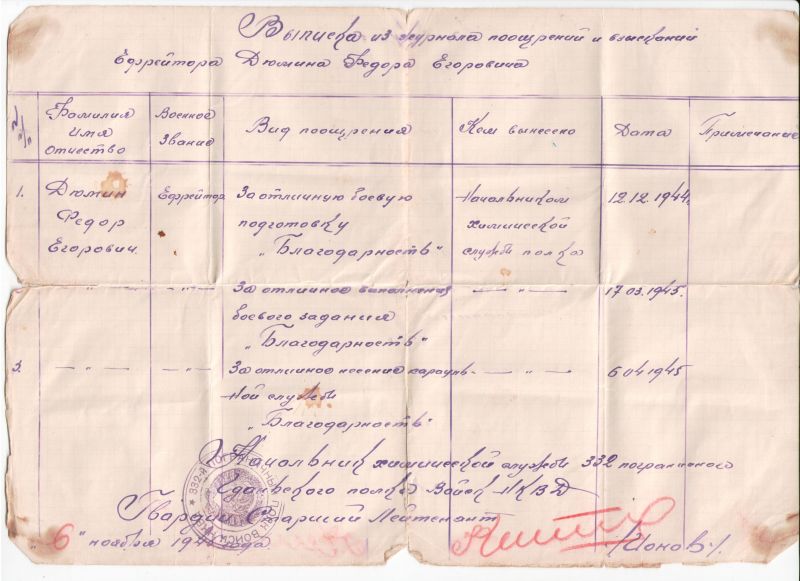 Выписка из журнала поощрений и взысканий
Ефрейтора Дюмина Федора Егоровича
№ п/п
Фамилия Имя Отчество
Военное Звание
Вид поощрения
Кем вынесено
Дата
Примечание
1.
Дюмин
Федор
Егорович.
Ефрейтор
За отличную боевую
подготовку
„Благодарность“
Начальником
химической
службы полка
12.12.1944г.
— „ —
— „ —
За отличное выполнение
боевого задания
„Благодарность“
— „ —
17.03.1945.
3.
— „ —
— „ —
За отличное несение карауль-
ной службы
„Благодарность“
— „ —
6.04.1945
Начальник химической службы 332 пограничного
полка Войск НКВД
Гвардии Старший Лейтенант
/Ионов/.
„6“ ноября года